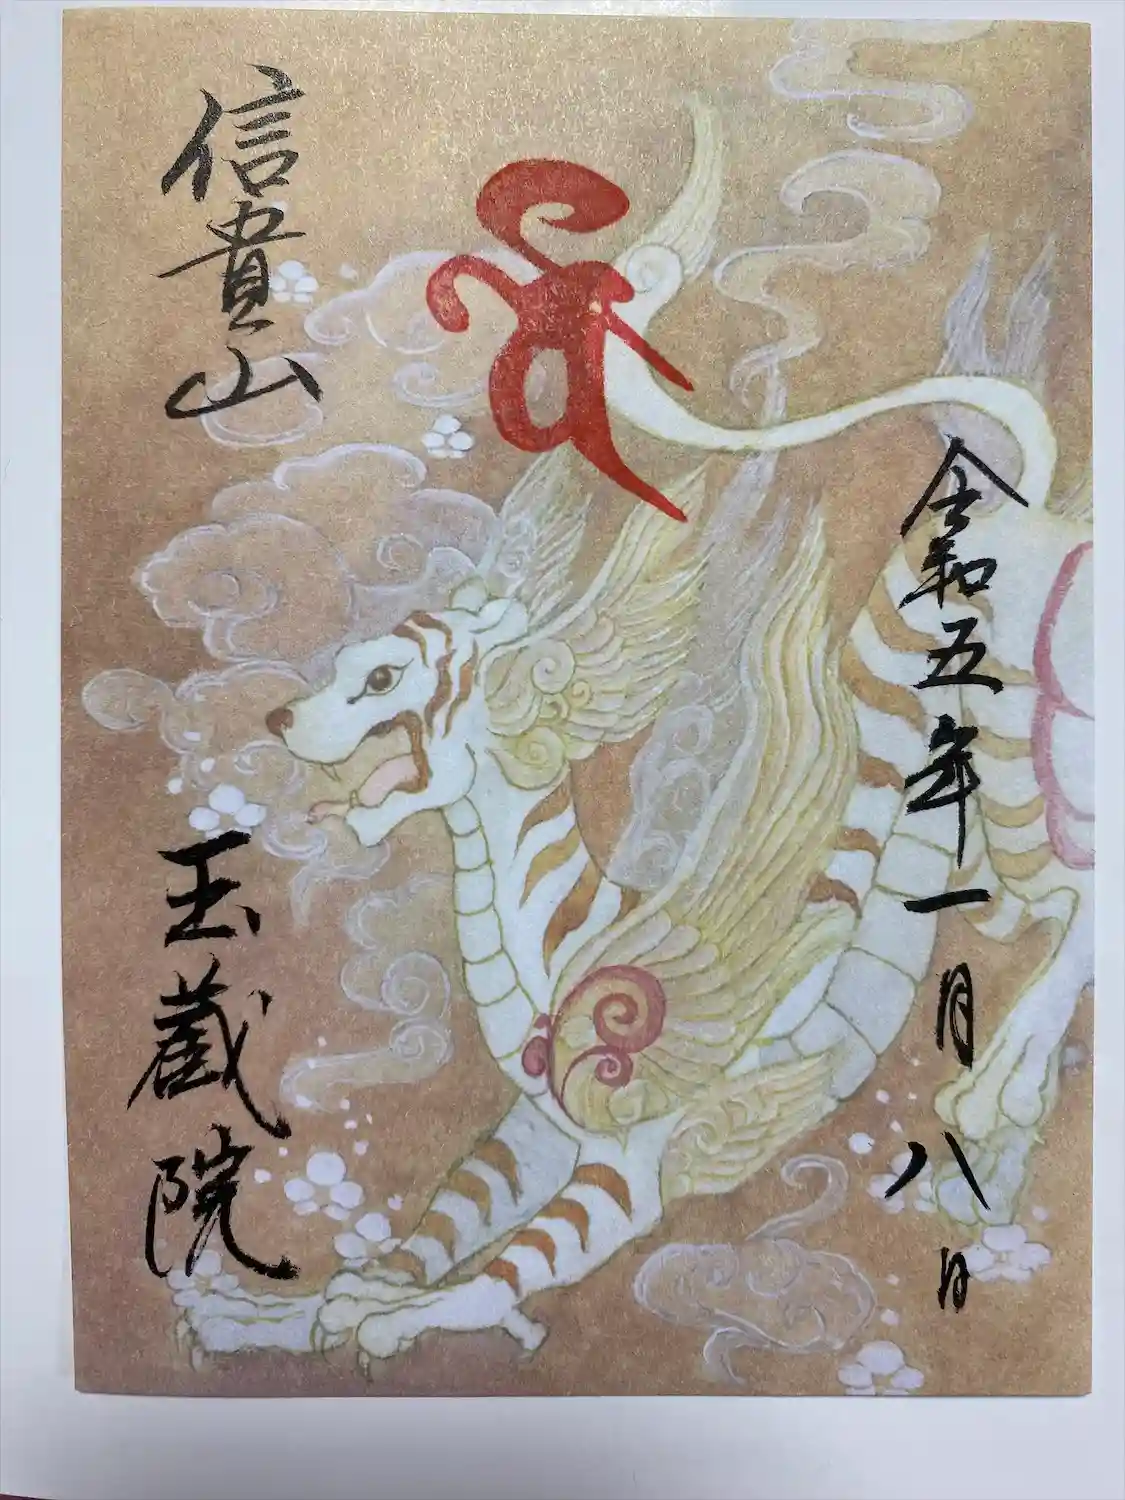 令和五年一月八日
信貴山
玉蔵院